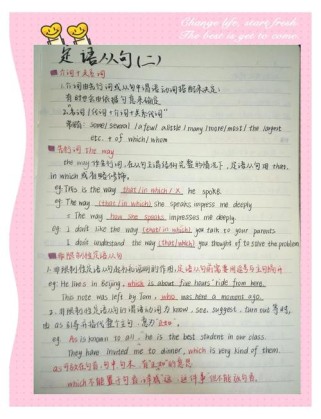 Change life, start fresh.
The best is yet to come.
定语从句(二)
介词+关系词
1.介词由先行词或从句中谓语动词搭配来决定;
有时也会由依据句意来确定
2.名词/代词+介词+关系代词
some/several/a few/a little/many/more/most/the largest
etc. + of which/whom
先行词 the way
the way 作先行词,在从句主语谓语完整的情况下,定语从句用 that,
in which 或省略修饰。
eg. This is the way that/in which/X he spoke.
eg. The way (that/in which) she speaks impress me deeply.
= The way how she speaks impresses me deeply.
eg. I don't like the way (that/in which) you talk to your parents
I don't understand the way (that/which) you thought of to save the problem
非限制性定语从句
1. 非限制性定语从句起补充说明的作用,定语从句前需要用逗号与主句隔开
eg. He lives in Beijing, which is about five hours' ride from here.
This note was left by Tom, who was here a moment ago.
2. 非限制性定语从句的谓语动词为 know, see, suggest, turn out 等时,
由 as 引导并指代整个主句,意为"正如"。
eg. As is known to all, he is the best student in our class.
They have invited me to dinner, which is very kind of them.
as 可放在句首、句中、句末,有"正如"的意思
which 不能置于句首,译成"这,这件事"但不能放句首。